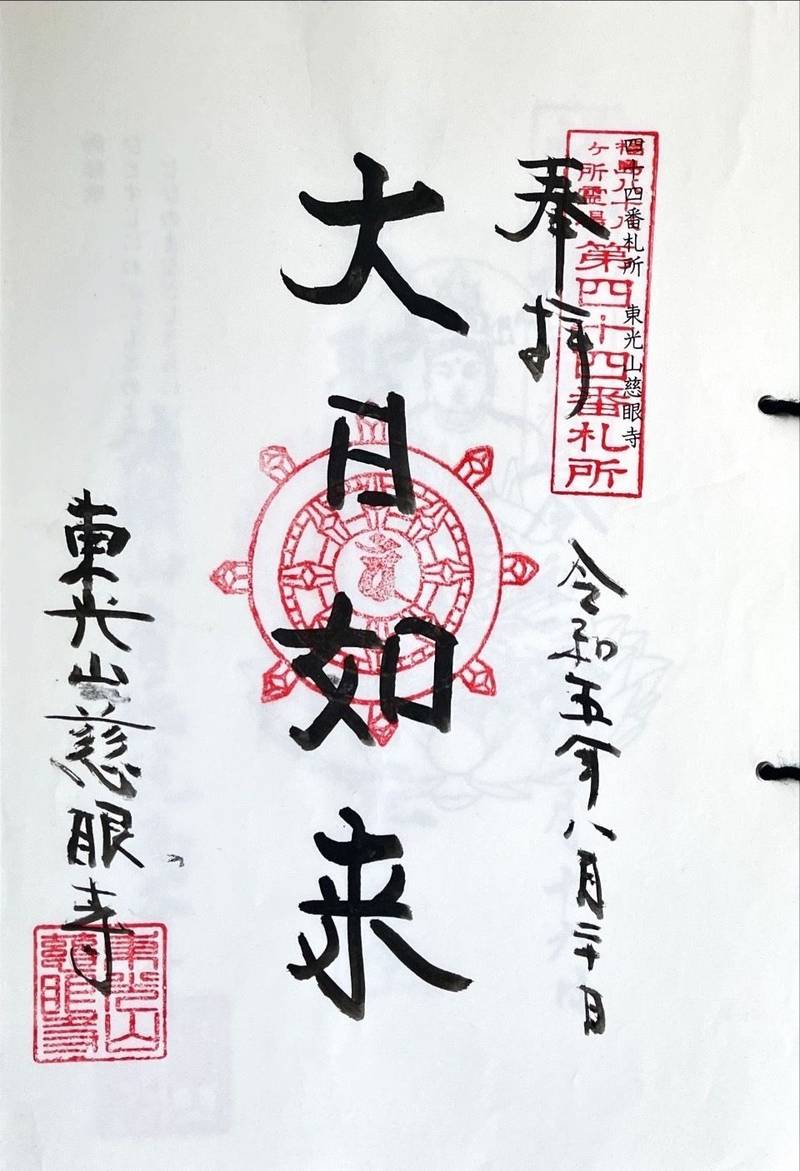 四十四番札所　東光山慈眼寺
八十八
ヶ所霊場
第四十四番札所
奉拝
令和五年八月二十日
大日如来
東光山慈眼寺
東光山
慈眼寺